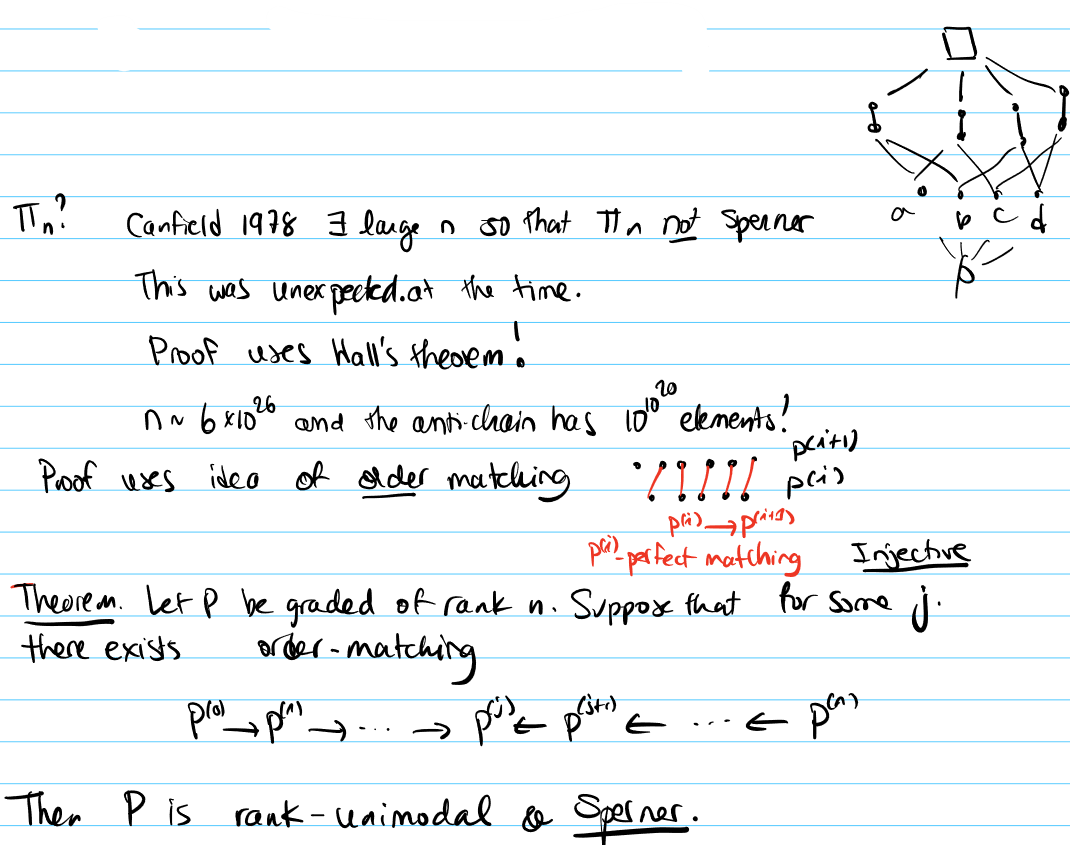 a b c d
p
Πn? Canfield 1978 ∃ large n so that Πn not Sperner
This was unexpected.at the time.
Proof uses Hall's theorem!
n ~ 6×10^26 and the anti-chain has 10^10^20 elements!
P^(i+1)
Proof uses idea of order matching P^(i)
P^(i) → P^(i+1)
P^(i)-perfect matching Injective
Theorem. Let P be graded of rank n. Suppose that for some j.
there exists order-matching
P^(0) → P^(1) → ... → P^(j) ← P^(j+1) ← ... ← P^(n)
Then P is rank-unimodal & Sperner.